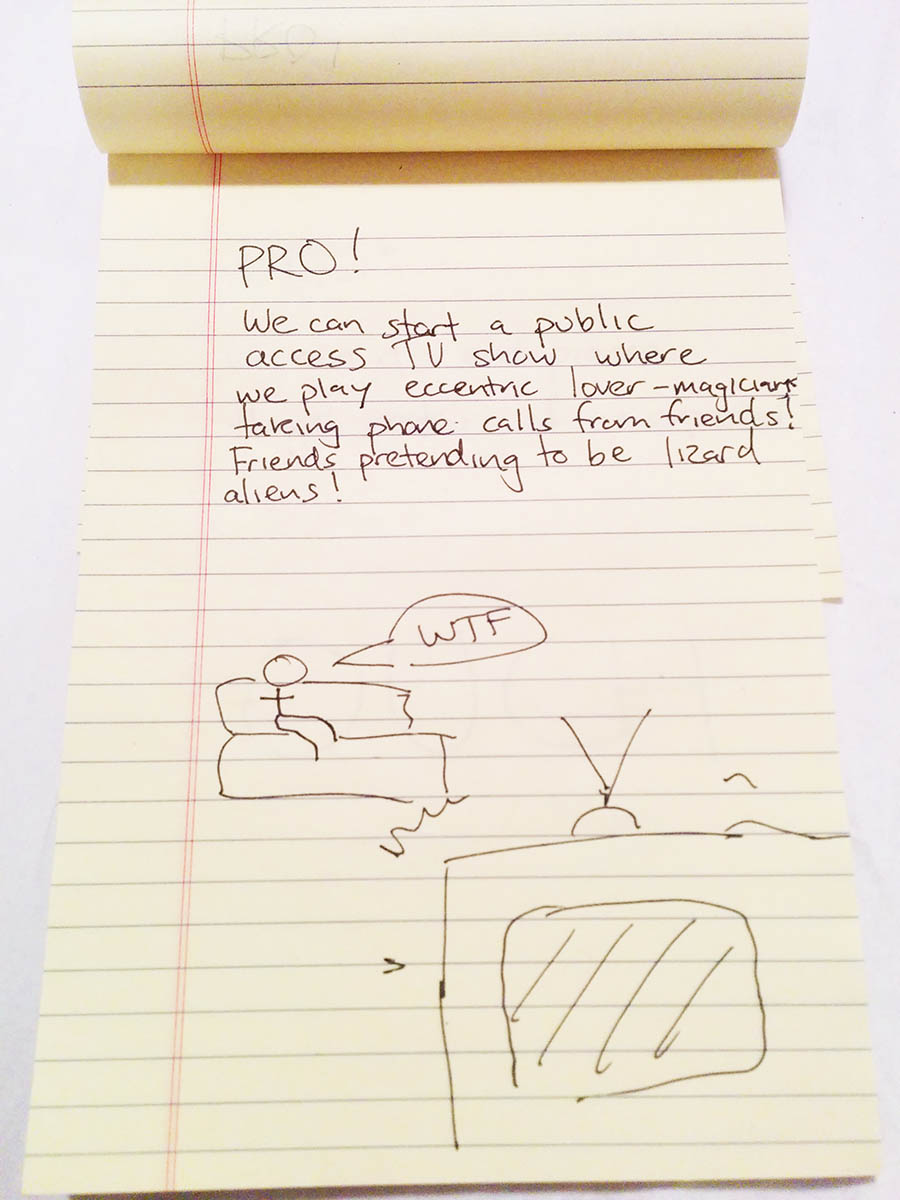 PRO!
We can start a public
access TV show where
we play eccentric lover-magicians
taking phone calls from friends!
Friends pretending to be lizard
aliens!
WTF